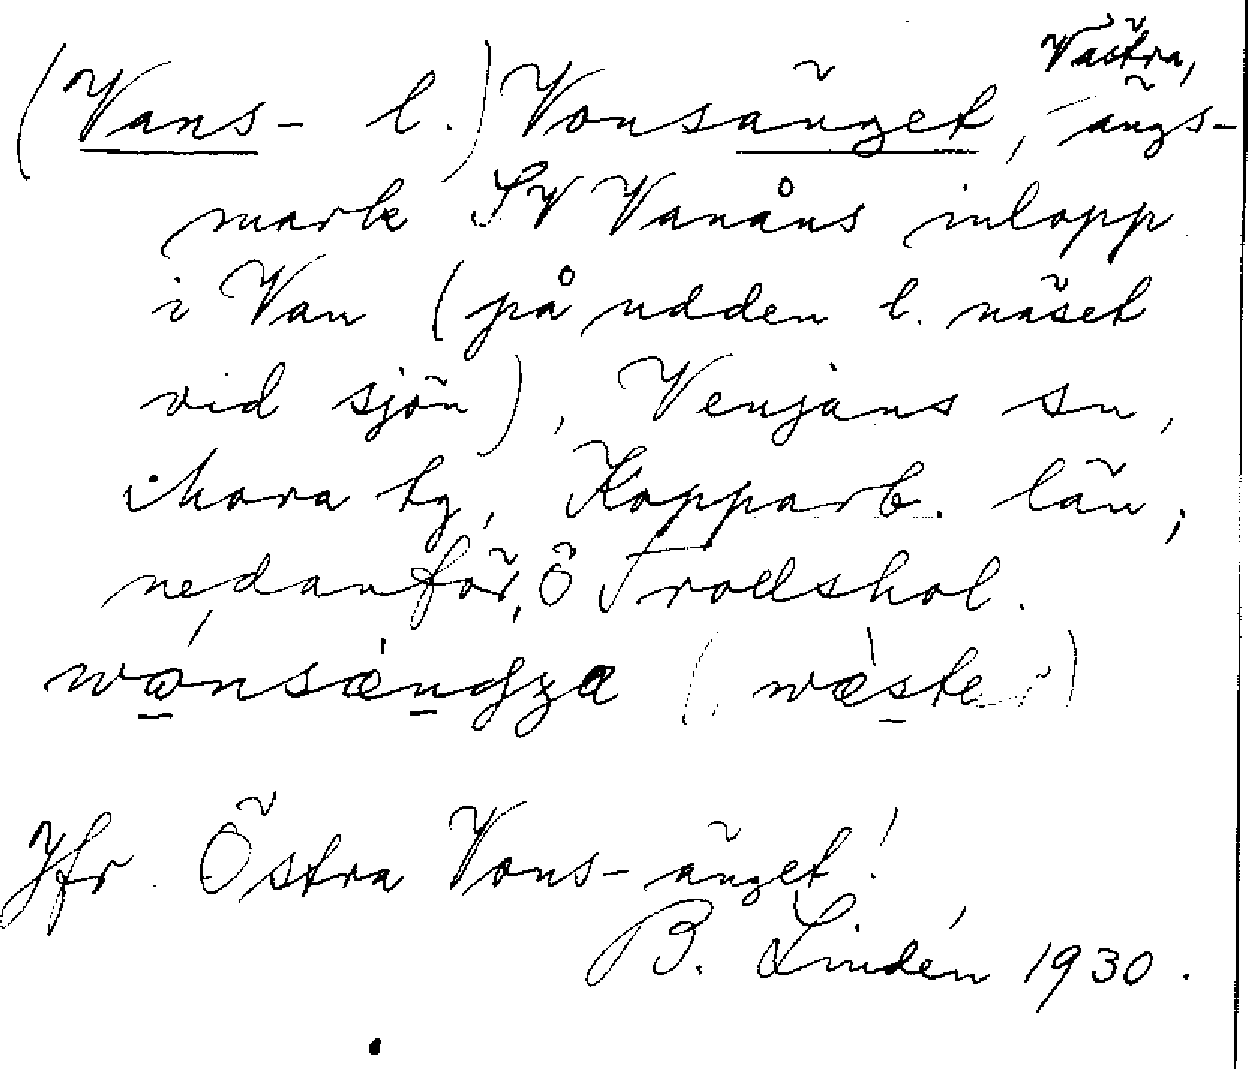 Västra,
(Vans- l.) Vonsänget, ängs-
mark SV Vanåns inlopp
i Van (på udden l. näset
vid sjön), Venjans sn,
Mora tg, Kopparb. län;
nedanför Ö Trollshol.
Jfr. Östra Vons-änget!
B. Lindén 1930.